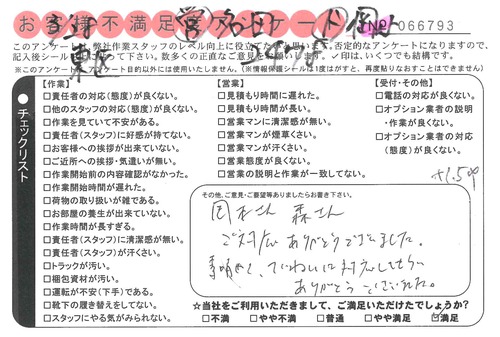 お客様不満足度アンケート
066793
このアンケートは、弊社作業スタッフのレベル向上に役立てたいと思います。否定的なアンケートになりますので、
記入後シールを 下さい。数多くの正直なご意見をお願いします。✓印は、いくつでも結構です。
※このアンケート アンケート目目以外には使用いたしません。(※情報保護シールは1度はがすと、再度貼りなおすことはできません)
チェックリスト
【作業】
□責任者の対応(態度)が良くない。
□他のスタッフの対応(態度)が良くない。
□作業を見ていて不安がある。
□責任者(スタッフ)に好感が持てない。
□お客様への挨拶が出来ていない。
□ご近所への挨拶・気遣いが無い。
□作業開始前の内容確認がなかった。
□作業開始時間が遅れた。
□荷物の取り扱いが雑である。
□お部屋の養生が出来ていない。
□作業時間が長すぎる。
□責任者(スタッフ)に清潔感が無い。
□責任者(スタッフ)が汗くさい。
□トラックが汚い。
□梱包資材が汚い。
□運転が不安(下手)である。
□靴下の履き替えをしてない。
□スタッフにやる気がみられない。
【営業】
□見積もり時間に遅れた。
□見積もり時間が長い。
□営業マンに清潔感が無い。
□営業マンが煙草くさい。
□営業マンが汗くさい。
□営業態度が良くない。
□営業の説明と作業が一致してない。
【受付・その他】
□電話の対応が良くない。
□オプション業者の説明
・作業が良くない。
□オプション業者の対応
(態度)が良くない。
その他、ご意見・ご要望等ありましたらお書き下さい。
岡本さん 森さん
ご対応ありがとうございました。
素晴らしく、ていねいに対応してもらい
ありがとうございました。
☆当社をご利用いただきまして、ご満足いただけたでしょうか?
□不満 □やや不満 □普通 □やや満足 ☑満足